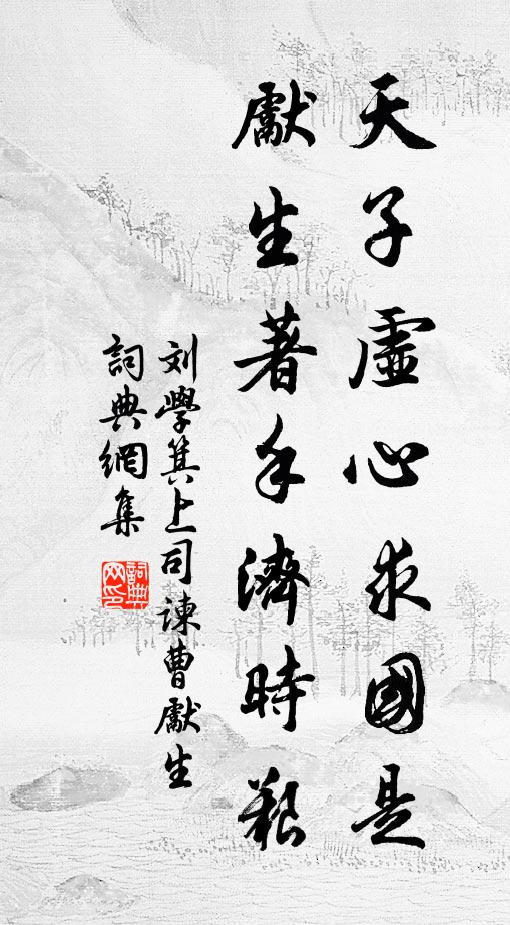 天子虛心求國是
獻生著手濟時艱
刘學箕上司諫曹獻生
詞典網集
詞典
网印